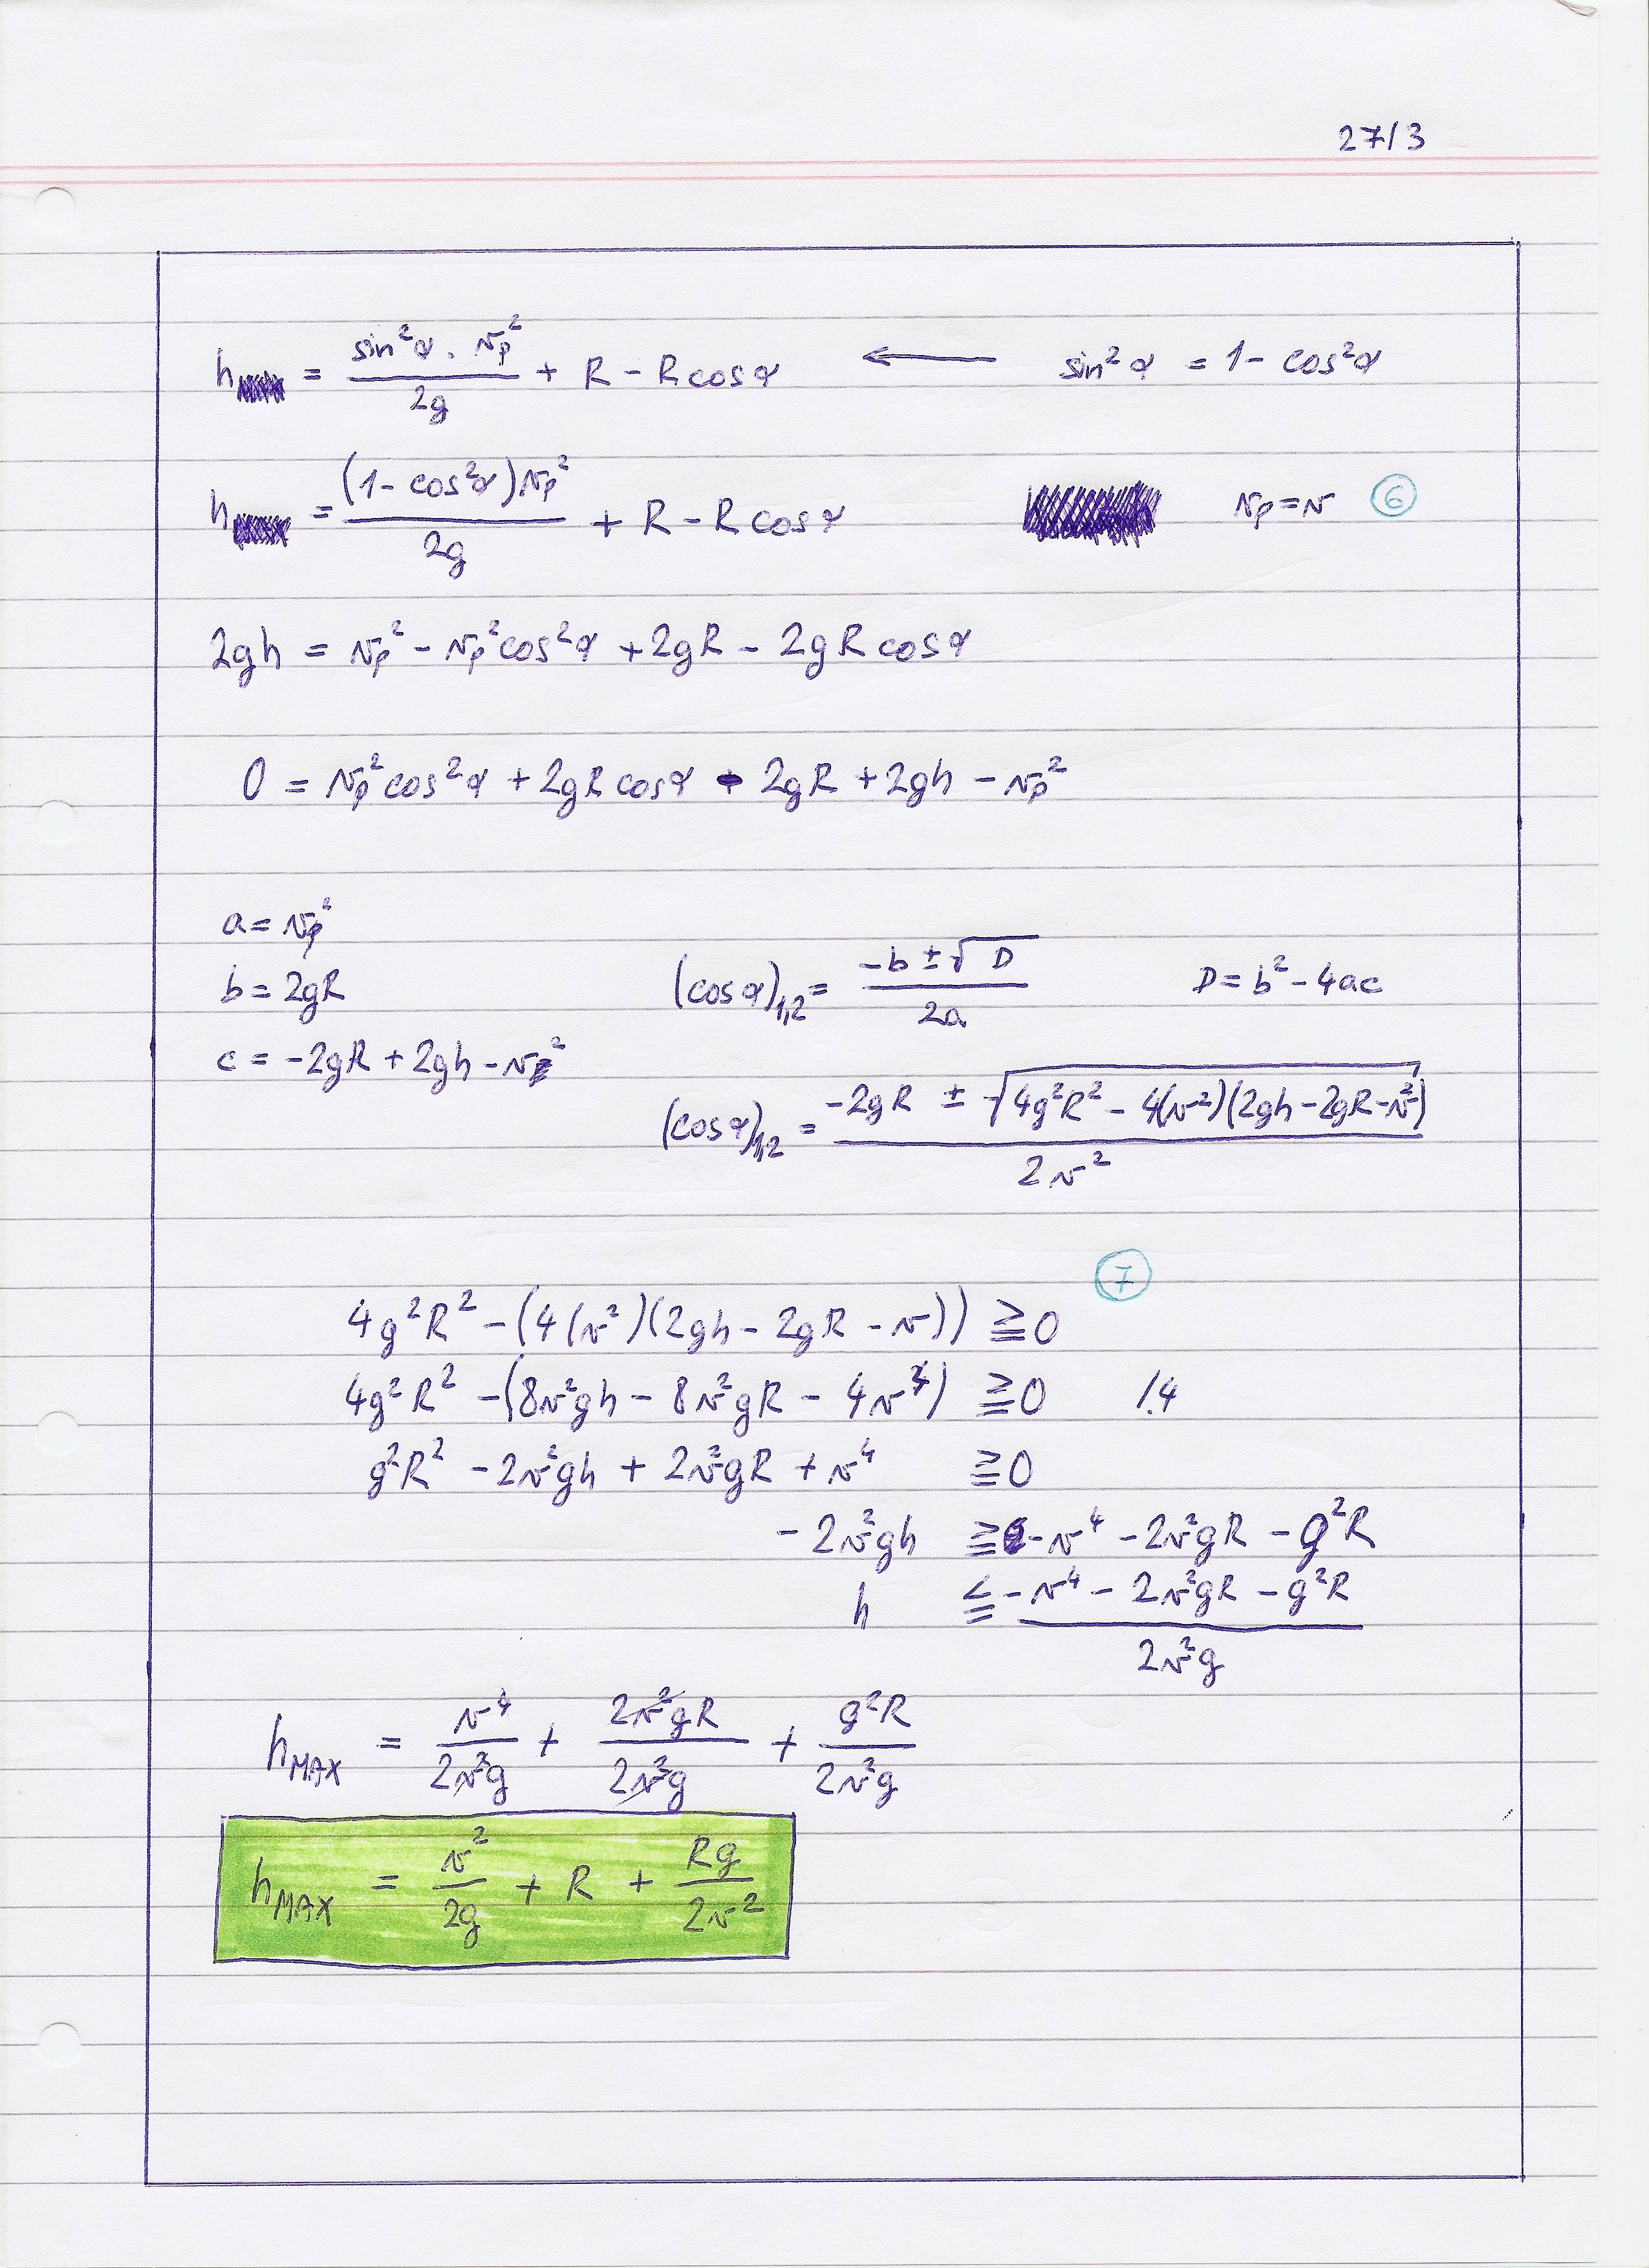 27/3
h = sin²α · v_p² / 2g + R − R cosα ← sin²α = 1 − cos²α
h = (1 − cos²α)v_p² / 2g + R − R cosα v_p = v ⑥
2gh = v_p² − v_p² cos²α + 2gR − 2gR cosα
0 = v_p² cos²α + 2gR cosα - 2gR + 2gh − v_p²
a = v_p²
b = 2gR
c = −2gR + 2gh − v_p²
(cosα)₁,₂ = −b ± √D / 2a D = b² − 4ac
(cosα)₁,₂ = −2gR ± √(4g²R² − 4(v²)(2gh − 2gR − v²)) / 2v²
⑦
4g²R² − (4(v²)(2gh − 2gR − v)) ≧ 0
4g²R² − (8v²gh − 8v²gR − 4v⁴) ≧ 0 /:4
g²R² − 2v²gh + 2v²gR + v⁴ ≧ 0
− 2v²gh ≧ −v⁴ − 2v²gR − g²R
h ≦ −v⁴ − 2v²gR − g²R / 2v²g
h_MAX = v⁴ / 2v²g + 2v²gR / 2v²g + g²R / 2v²g
h_MAX = v² / 2g + R + Rg / 2v²